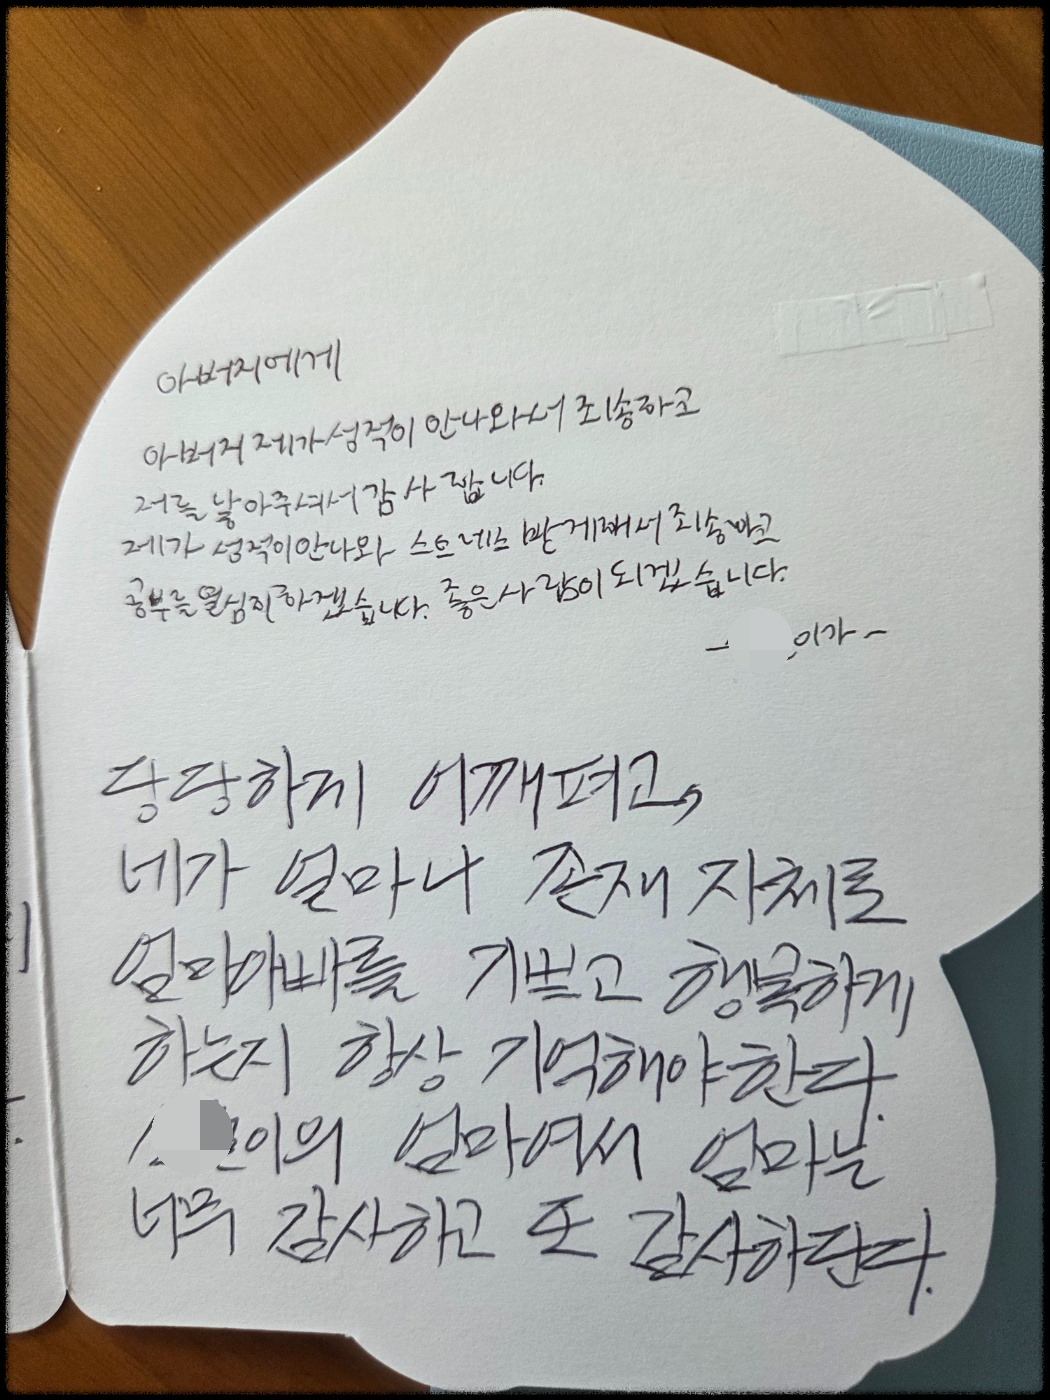 아버지에게
아버지 제가 성적이 안나와서 죄송하고
저를 낳아주셔서 감사합니다.
제가 성적이 안나와 스트레스 받게해서 죄송하고
공부를 열심히 하겠습니다. 좋은 사람이 되겠습니다.
- 이가 -
당당하게 어깨펴고,
네가 얼마나 존재 자체로
엄마아빠를 기쁘고 행복하게
하는지 항상 기억해야한다.
이의 엄마여서 엄마는
너무 감사하고 또 감사하단다.